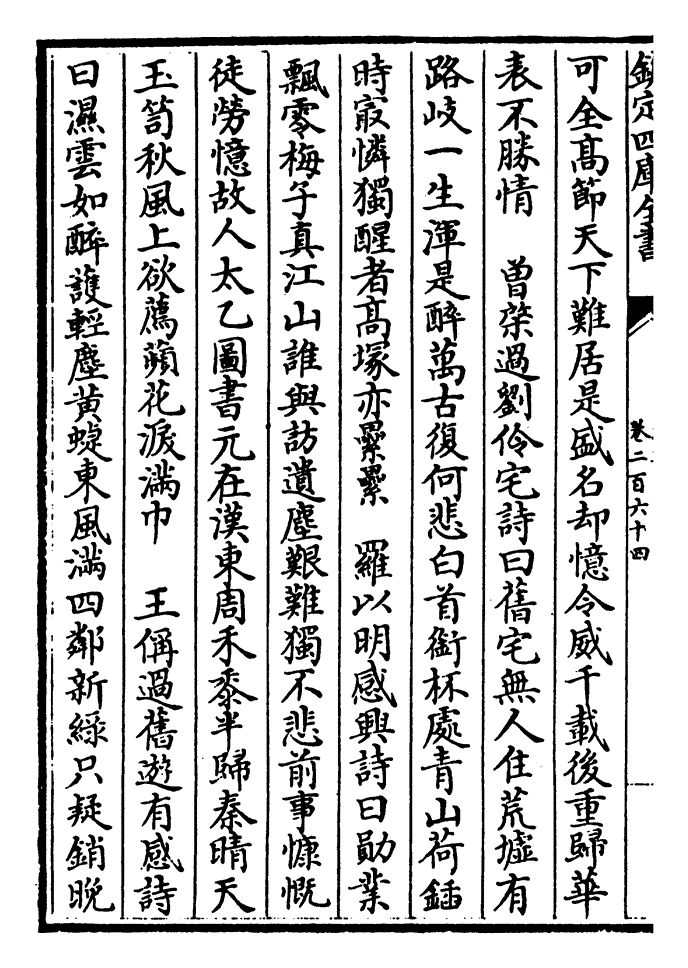 欽定四庫全書
卷二百六十四
可全高節天下難居是盛名却憶令威千載後重歸華
表不勝情　曾棨過劉伶宅詩曰舊宅無人住荒墟有
路岐一生渾是醉萬古復何悲白首銜杯處青山荷鍤
時寂憐獨醒者高塚亦纍纍　羅以明感興詩曰勛業
飄零梅子真江山誰與訪遺塵艱難獨不悲前事慷慨
徒勞憶故人太乙圖書元在漢東周禾黍半歸秦晴天
玉笥秋風上欲薦蘋花淚滿巾　王偁過舊遊有感詩
曰濕雲如醉護輕塵黄蜨東風滿四鄰新綠只疑銷晚